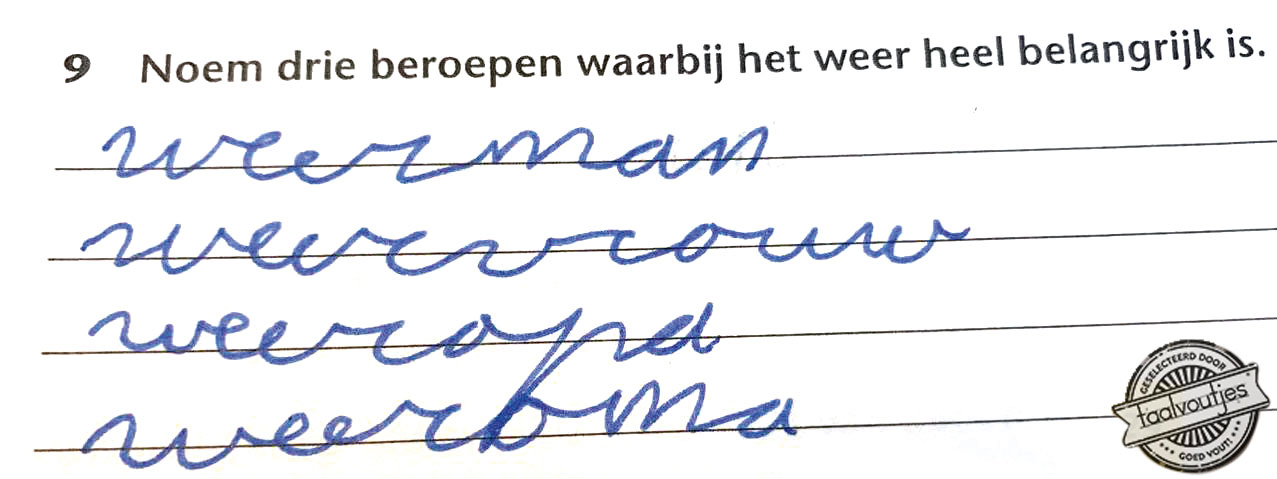 9 Noem drie beroepen waarbij het weer heel belangrijk is.
weerman
weervrouw
weeropa
weeroma
GESELECTEERD DOOR
taalvoutjes
GOED VOUT!